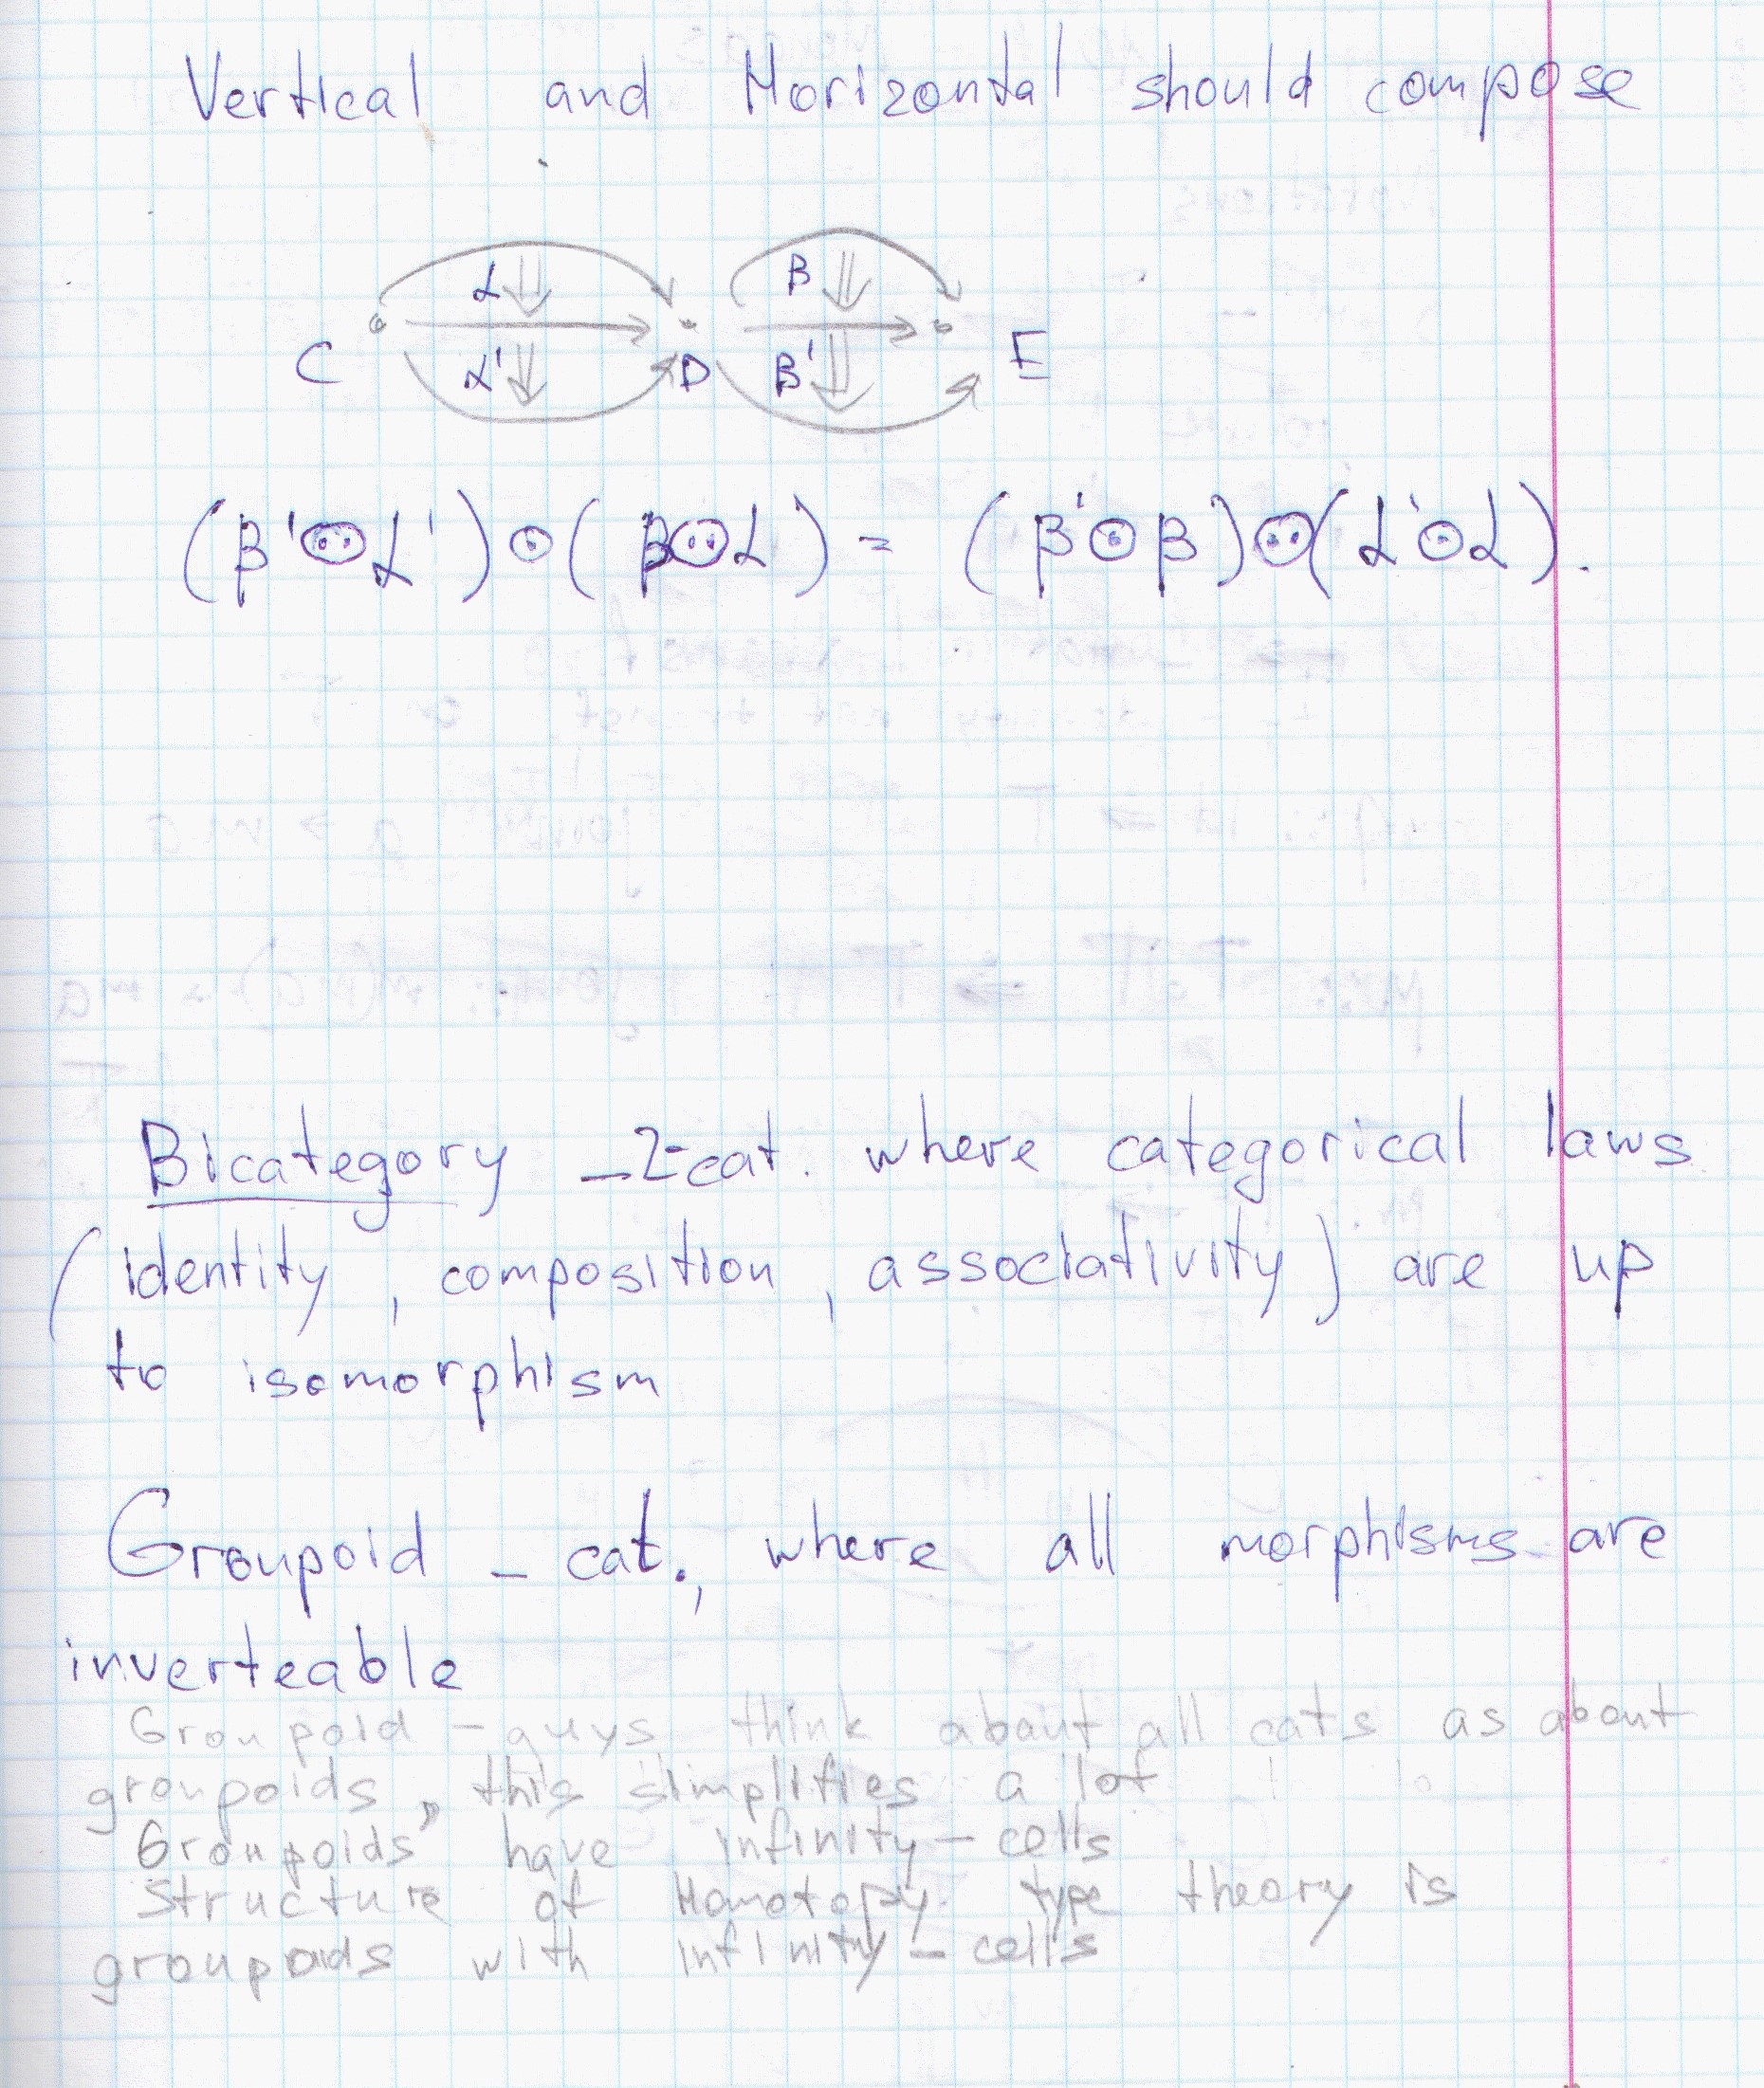 Vertical and Horizontal should compose
α β
C α' D β' E
(β'⊙α')⊙(β⊙α) = (β'⊙β)⊙(α'⊙α).
Bicategory - 2-cat. where categorical laws
(identity, composition, associativity) are up
to isomorphism
Groupoid - cat., where all morphisms are
inverteable
Groupoid - guys think about all cats as about
groupoids, this simplifies a lot
Groupoids have infinity-cells
Structure of Homotopy type theory is
groupoids with infinity-cells